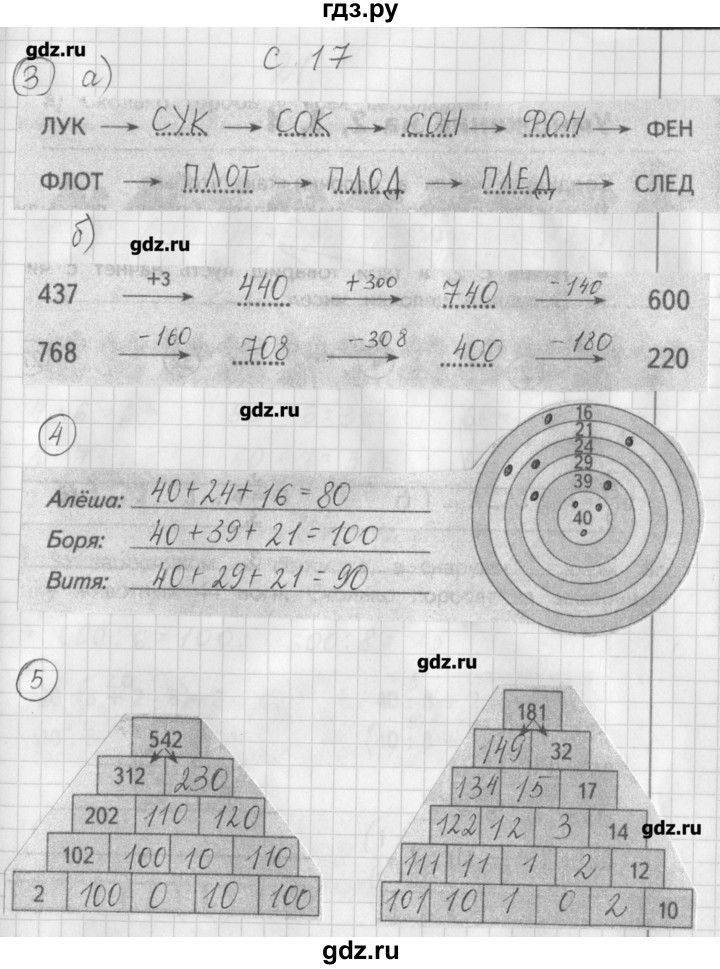 гдз.ру
gdz.ru
с 17
3 а)
ЛУК → СУК → СОК → СОН → ФОН → ФЕН
ФЛОТ → ПЛОТ → ПЛОД → ПЛЕД → СЛЕД
б) gdz.ru
437 +3 → 440 +300 → 740 -140 → 600
768 -160 → 708 -308 → 400 -180 → 220
gdz.ru
4
16
21
24
29
39
40
Алёша: 40+24+16=80
Боря: 40+39+21=100
Витя: 40+29+21=90
gdz.ru
5
542
312 230
202 110 120
102 100 10 110
2 100 0 10 100
181
149 32
134 15 17
122 12 3 14
gdz.ru
111 11 1 2 12
101 10 1 0 2 10
gdz.ru